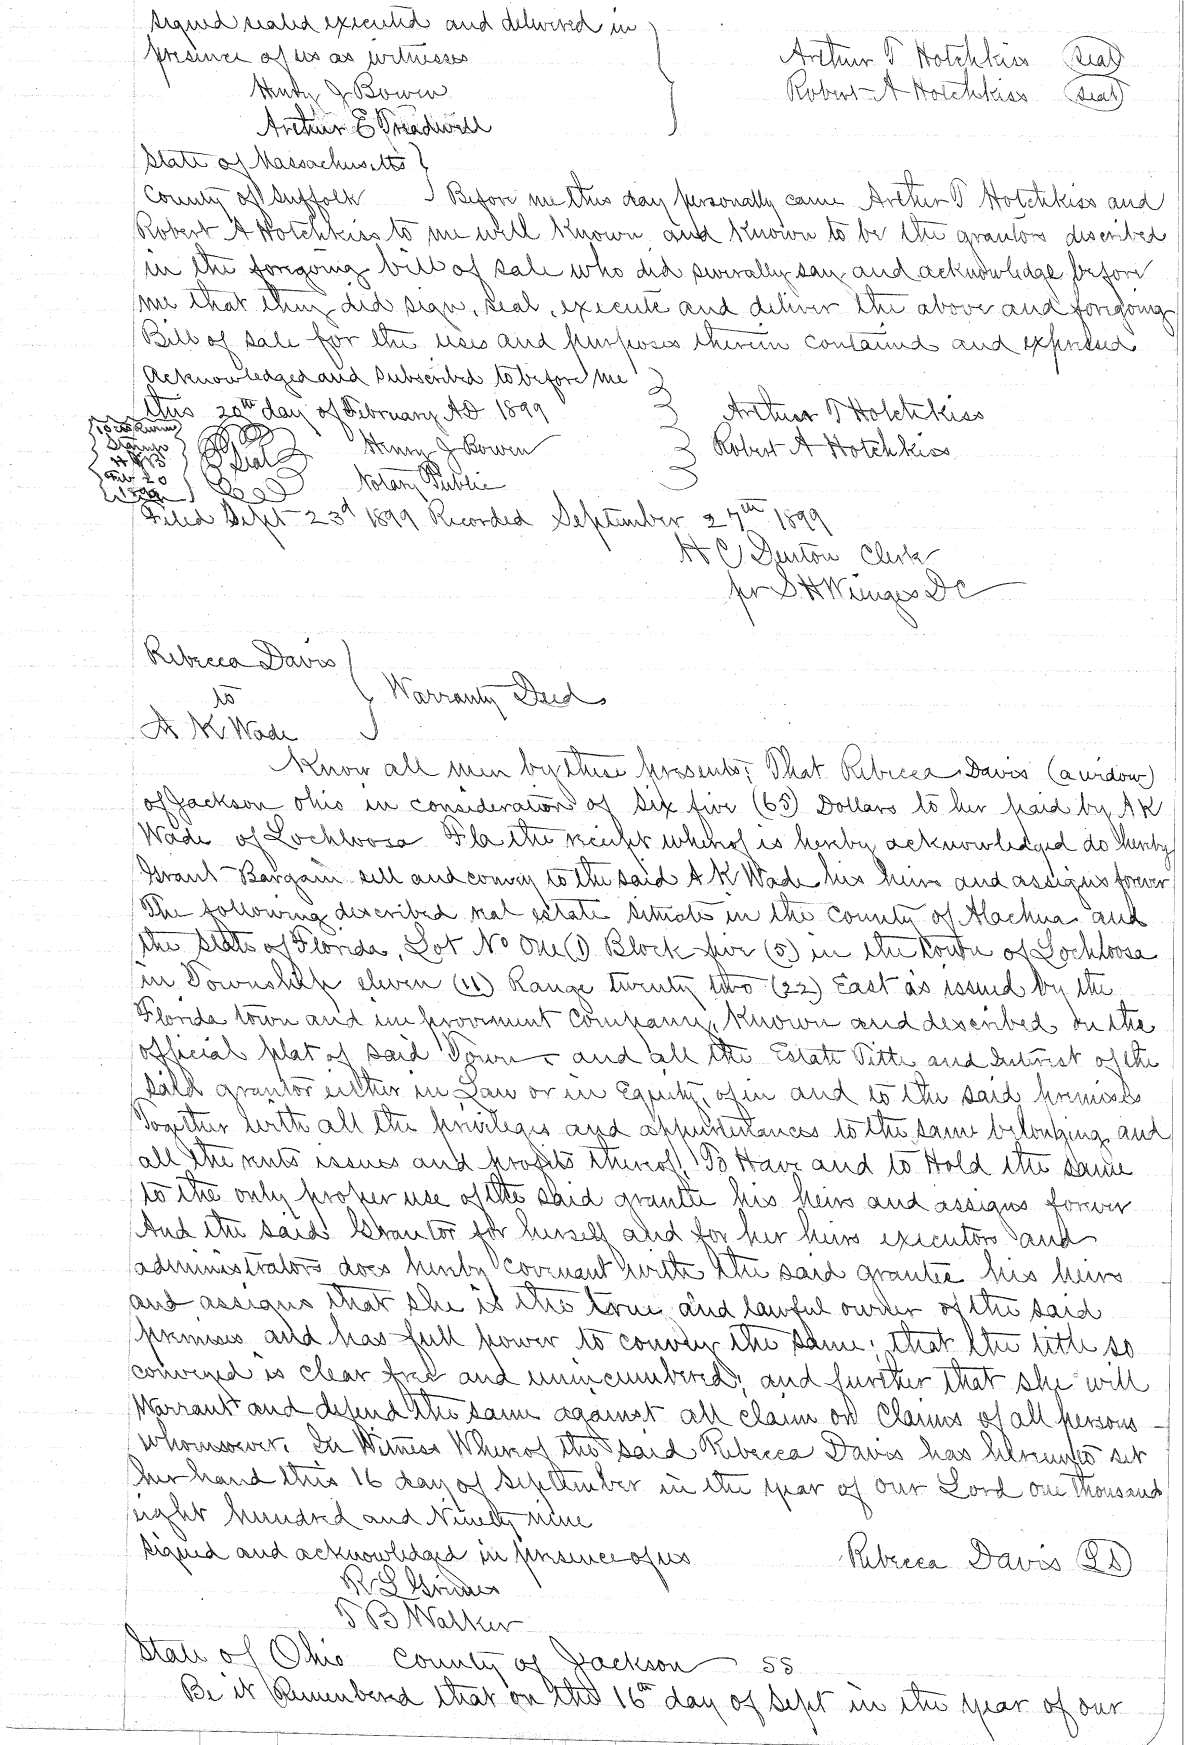 Signed sealed executed and delivered in
presence of us as witnesses
Arthur T Hotchkiss (seal)
Henry J Bowen
Robert A Hotchkiss (seal)
Arthur E Treadwell
State of Massachusetts
County of Suffolk Before me this day personally came Arthur T Hotchkiss and
Robert A Hotchkiss to me well known and known to be the grantors described
in the foregoing bill of sale who did severally say and acknowledge before
me that they did sign, seal, execute and deliver the above and foregoing
Bill of sale for the uses and purposes therein contained and expressed
Acknowledged and subscribed to before me
this 20th day of February AD 1899
Arthur T Hotchkiss
Stamps
Seal
Henry J Bowen
Robert A Hotchkiss
HJB
Feb 20
1899
Notary Public
Filed Sept 23d 1899 Recorded September 27th 1899
H C Denton Clerk
pr S H Wienges DC
Rebecca Davis
to
Warranty Deed
A K Wade
Know all men by these presents; That Rebecca Davis (a widow)
of Jackson Ohio in consideration of Six five (65) Dollars to her paid by A K
Wade of Lochloosa Fla the receipt whereof is hereby acknowledged do hereby
Grant Bargain sell and convey to the said A K Wade his heirs and assigns forever
The following described real estate situate in the County of Alachua and
the State of Florida, Lot No One (1) Block five (5) in the town of Lochloosa
in Township eleven (11) Range twenty two (22) East as issued by the
Florida town and improovment Company, Known and described on the
official plat of said Town and all the Estate Title and Interest of the
said grantor either in Law or in Equity, of in and to the said premises
Together with all the privileges and appurtenances to the same belonging and
all the rents issues and profits thereof; To Have and to Hold the same
to the only proper use of the said grantee his heirs and assigns forever
And the said Grantor for herself and for her heirs executors and
administrators does hereby covenant with the said grantee his heirs
and assigns that she is the true and lawful owner of the said
premises and has full power to convey the same; that the title so
conveyed is clear free and unincumbered; and further that she will
Warrant and defend the same against all claim or Claims of all persons
whomsoever. In Witness Whereof the said Rebecca Davis has hereunto set
her hand this 16 day of September in the year of our Lord one thousand
eight hundred and Ninety nine
Signed and acknowledged in presence of us
Rebecca Davis (LS)
R L Grimes
T B Walker
State of Ohio County of Jackson SS
Be it Remembered that on this 16th day of Sept in the year of our